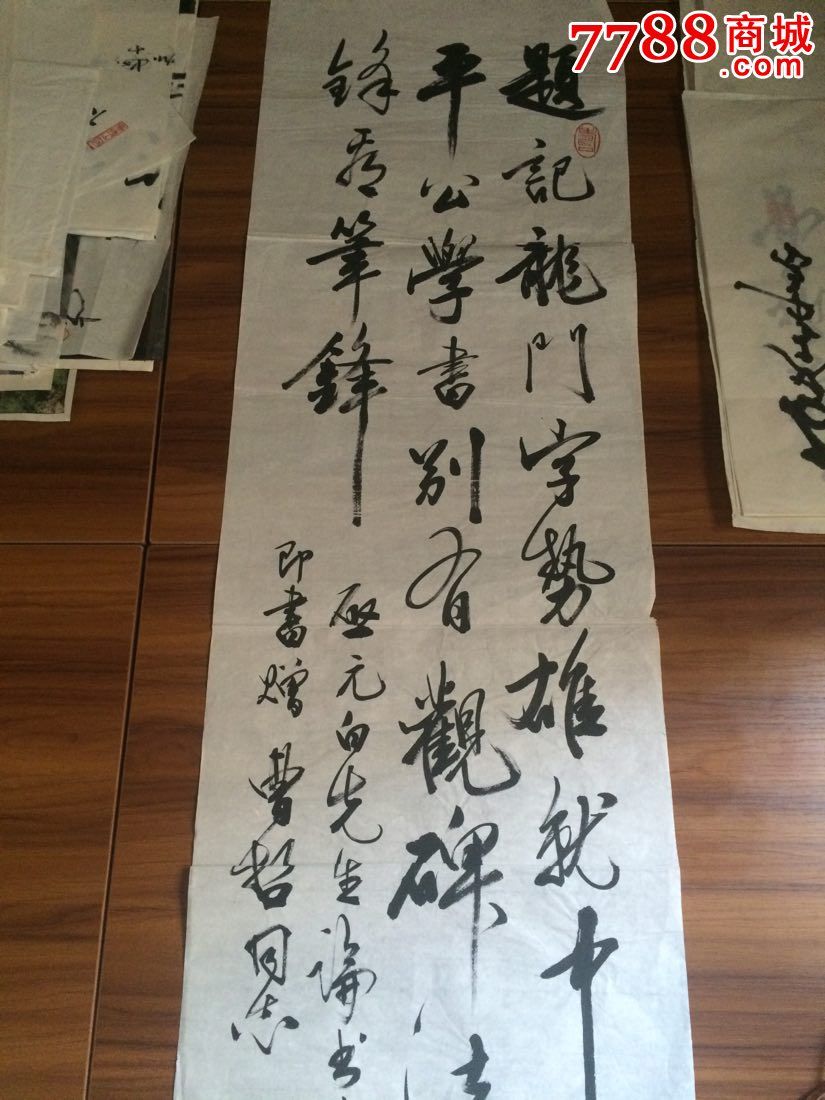 7788商城
.com
題記龍門字勢雄就中
平公學書別有觀碑法
鋒看筆鋒
啟元白先生論书
即書贈曹哲同志